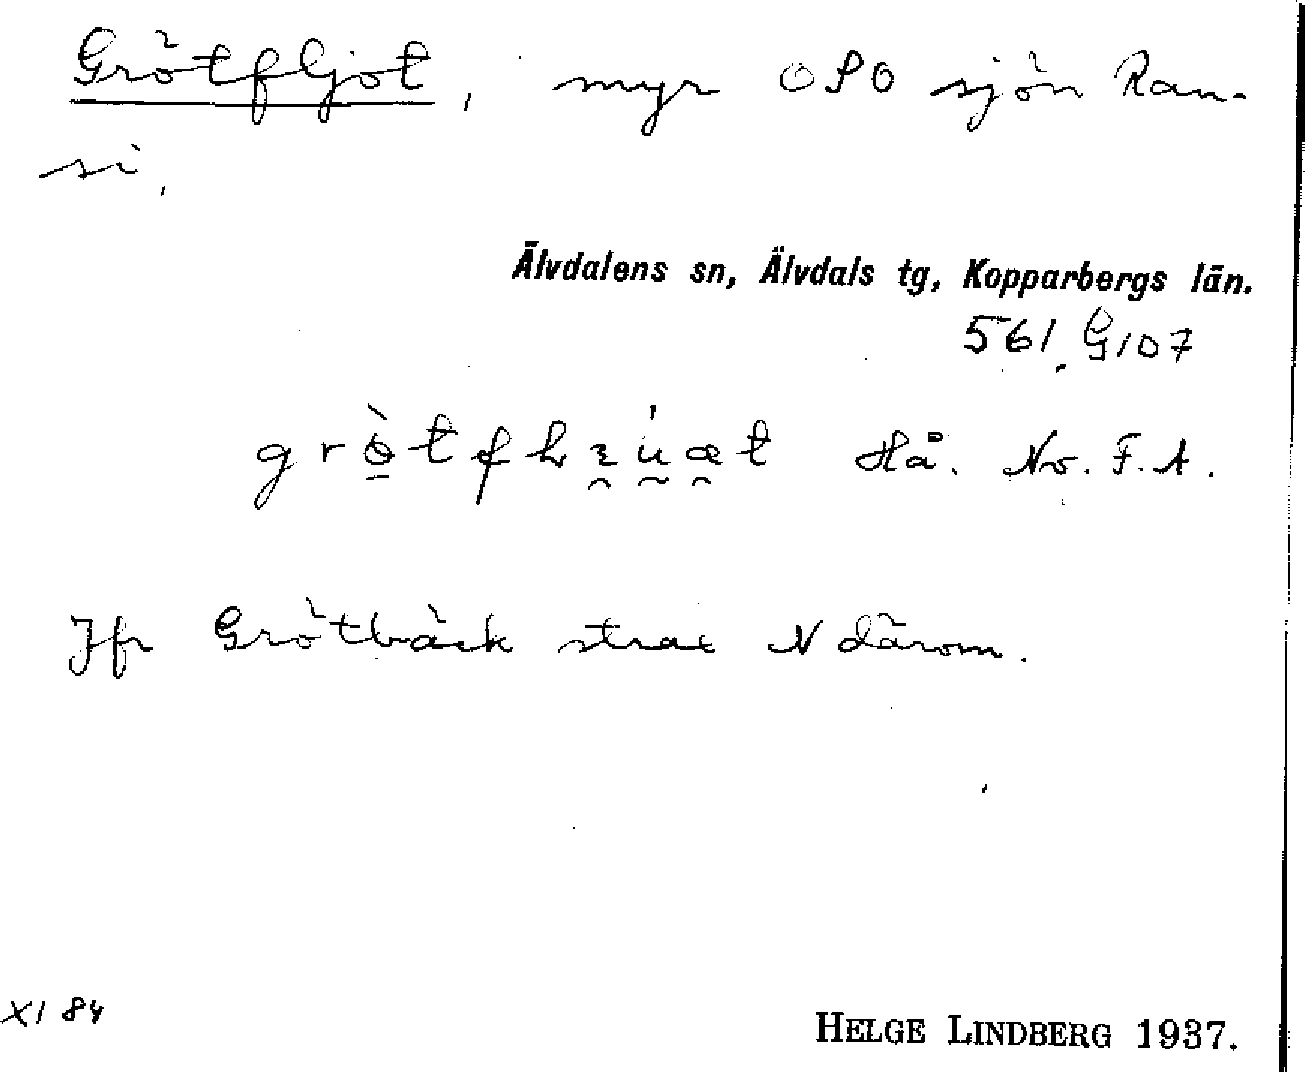 Grötfljot, myr OSO sjön Ran-
si.
Älvdalens sn, Älvdals tg, Kopparbergs län.
561. G107
Hå. No. F.A.
Jfr Grötbäck strax N därom.
XI 84
HELGE LINDBERG 1937.